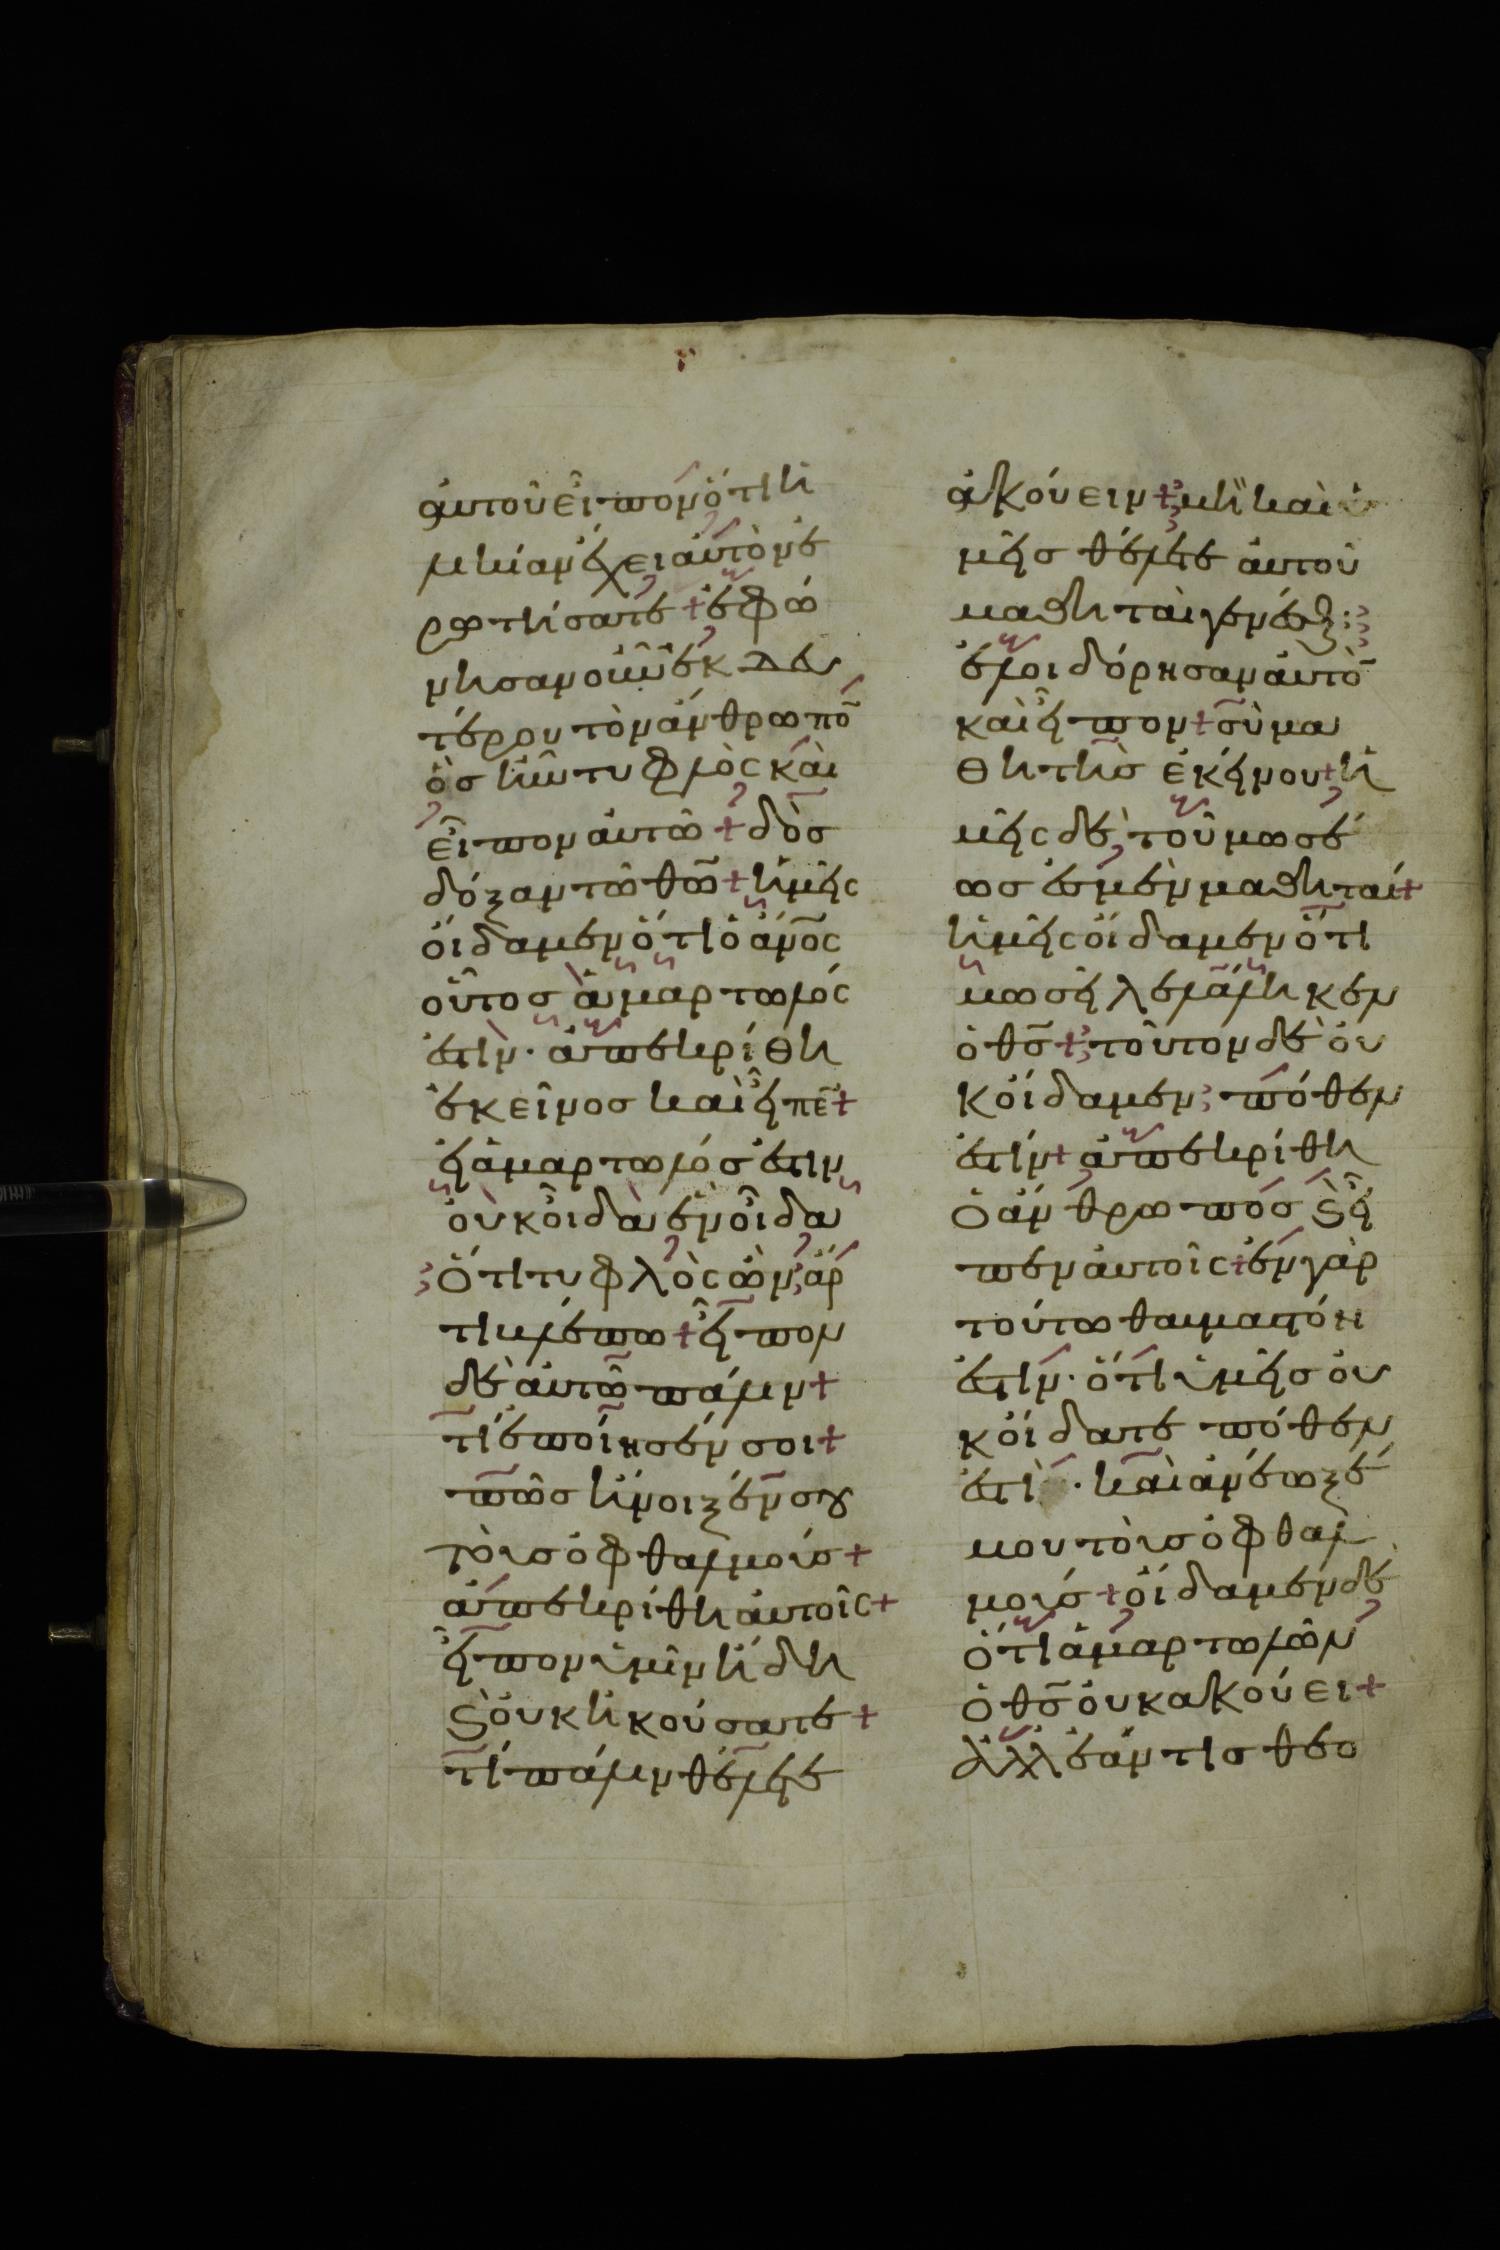 αυτοῦ εἶπον ὅτι ἡ
λικίαν ἔχει αὐτὸν ἐ
ρωτήσατε + ἐφώ
νησαν οὖν ἐκ δευ
τέρου τὸν ἄνθρωπο̅
ὃς ἦν τυφλὸς καὶ
εἶπον αὐτῶ + δὸσ
δόξαν τῶ θω̅ + ἡμεῖς
οἴδαμεν ὅτι ὁ ἀνο̅ς
οὗτοσ ἁμαρτωλός
ἐστιν · ἀπεκρίθη
ἐκεῖνοσ καὶ εἶπε̅ +
εἰ ἁμαρτωλόσ ἐστιν
οὐκ οἶδα ἓν οἶδα
ὅτι τυφλὸς ὢν ἄρ
τι βλέπω + εἶπον
δὲ αὐτῶ πάλιν +
τί ἐποίησέν σοι +
πῶσ ἤνοιξέν σου
τοὺσ ὀφθαλμούσ +
ἀπεκρίθη αὐτοῖς +
εἶπον ὑμῖν ἤδη
ϗ οὐκ ἠκούσατε +
τί πάλιν θέλετε
ἀκούειν + μὴ καὶ ὑ
μεῖσ θέλετε αὐτοῦ
μαθηταὶ γενέσθ
ἐλοιδόρησαν αὐτο̅
καὶ εἶπον + σὺ μα
θητὴσ ἐκείνου + ἡ
μεῖς δὲ τοῦ μωσέ
ωσ ἐσμὲν μαθηταί +
ἡμεῖς οἴδαμεν ὅτι
μωσεῖ λελάληκεν
ὁ θσ̅ + τοῦτον δὲ οὐ
κ οἴδαμεν πόθεν
ἐστίν + ἀπεκρίθη
ὁ ἄνθρωποσ ϗ εἶ
πεν αὐτοῖς + ἐν γὰρ
τούτω θαυμαστόν
ἐστιν · ὅτι ὑμεῖσ οὐ
κ οἴδατε πόθεν
ἐστὶ · καὶ ἀνέωξέ
μου τοὺσ ὀφθαλ
μούσ + οἴδαμεν δὲ
ὅτι ἁμαρτωλῶν
ὁ θσ̅ οὐκ ἀκούει +
ἀλλ ἐάν τισ θεο